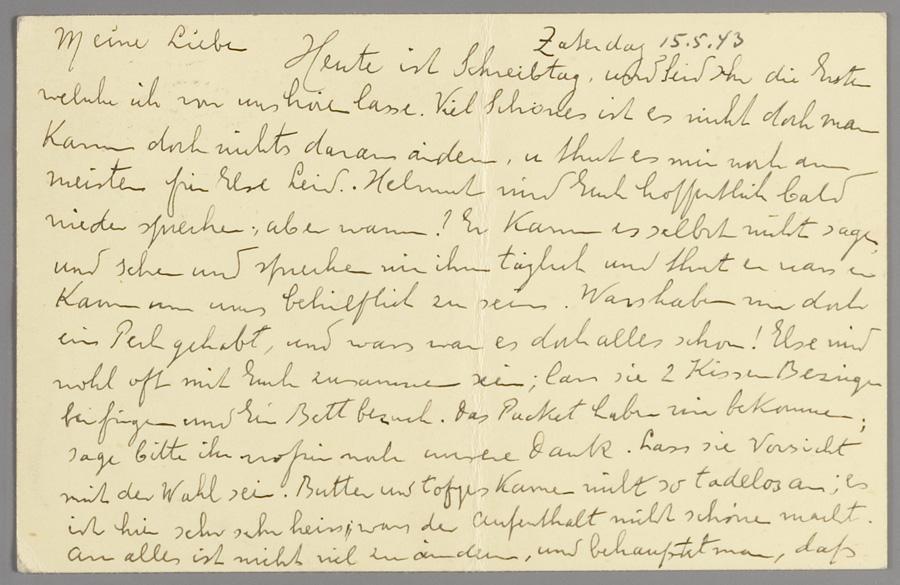 Meine Liebe Zaterdag 15.5.43
Heute ist Schreibtag, und seid Ihr die Erste
welche ich von uns höre lasse. Viel Schönes ist es nicht doch man
kann doch nichts daran änden, u thut es mir noch am
meisten für Else Leid. Helmut wird Euch hoffentlich bald
wieder spreche, aber wann! Er kann es selbst nicht sage,
und sehe und spreche wir ihn täglich und thut er was er
kann um uns behilflich zu sein. Was habe wir doch
ein Pech gehabt, und wass war es doch alles schon! Else wird
wohl oft mit Euch zusamme sein; lass sie 2 Kissen Bezüge
beifüge und Ein Bett bezuch. Das Packet habe wir bekomme;
sage bitte ihr dafür noch unsere Dank. Lass sie Vorsicht
mit der Wahl sein. Butter und tofjes kame nicht so tadelos an; es
ist hier sehr sehr heiss, was der Aufenthalt nicht schöne macht.
An alles ist nicht viel zu ändern, und behauptet man, dass